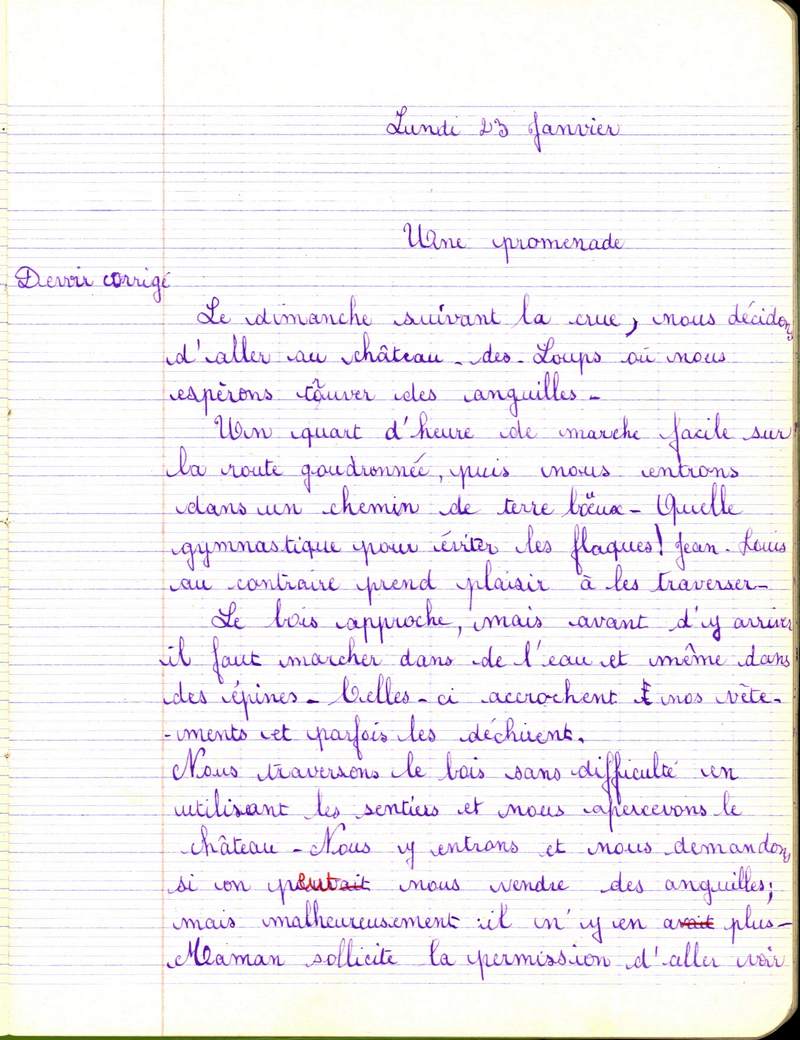 Lundi 23 Janvier
Une promenade
Devoir corrigé
Le dimanche suivant la crue, nous décidons
d'aller au château-des-Loups où nous
espèrons trouver des anguilles-
Un quart d'heure de marche facile sur
la route goudronnée, puis nous entrons
dans un chemin de terre boueux- Quelle
gymnastique pour éviter les flaques! Jean-Louis
au contraire prend plaisir à les traverser-
Le bois approche, mais avant d'y arriver
il faut marcher dans de l'eau et même dans
des épines- Celles-ci accrochent nos vête-
-ments et parfois les déchirent.
Nous traversons le bois sans difficulté en
utilisant les sentiers et nous apercevons le
château- Nous y entrons et nous demandons
si on peut nous vendre des anguilles;
mais malheureusement il n'y en a plus-
Maman sollicite la permission d'aller voir